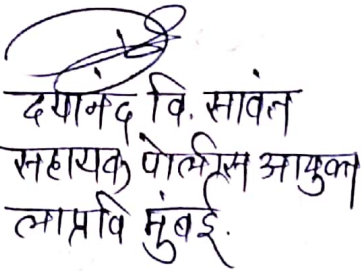 दयानंद वि. सावंत
सहायक पोलीस आयुक्त
लाप्रवि मुंबई.